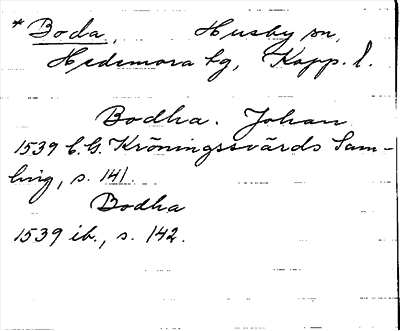 * Boda, Husby sn,
Hedemora tg, Kopp. l.
Bodha. Johan
1539 C.G. Kröningssvärds Sam-
ling, s. 141.
Bodha
1539 ib., s. 142.